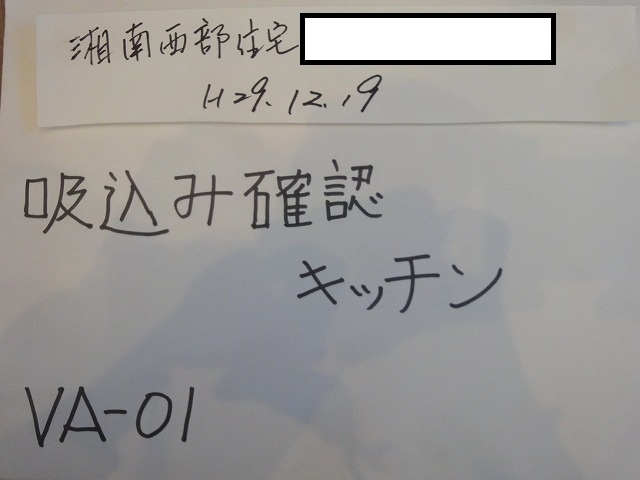 湘南西部住宅
H29.12.19
吸込み確認
キッチン
VA-01